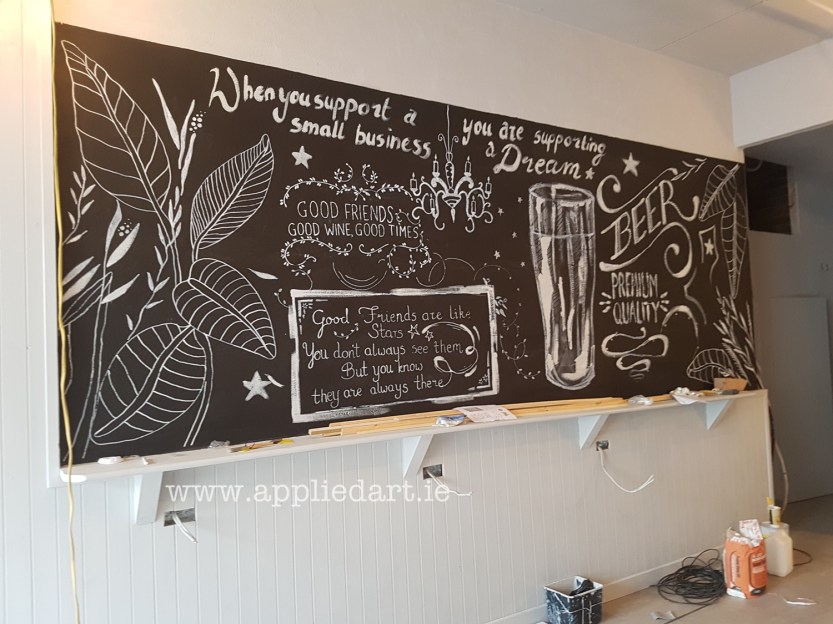 When you support a
small business
you are supporting
a Dream
GOOD FRIENDS
GOOD WINE, GOOD TIMES
Good Friends are like
Stars
You don't always see them
But you know
they are always there
BEER
PREMIUM
QUALITY
www.appliedart.ie